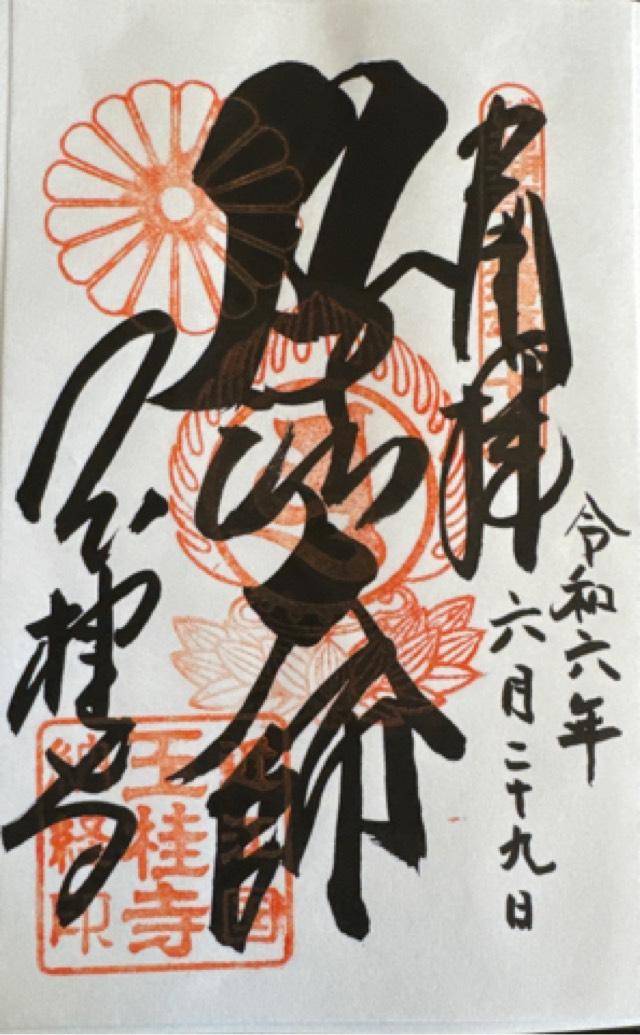 奉拝
令和六年
六月二十九日
弘法大師
玉桂寺
近江国
玉桂寺
納経印